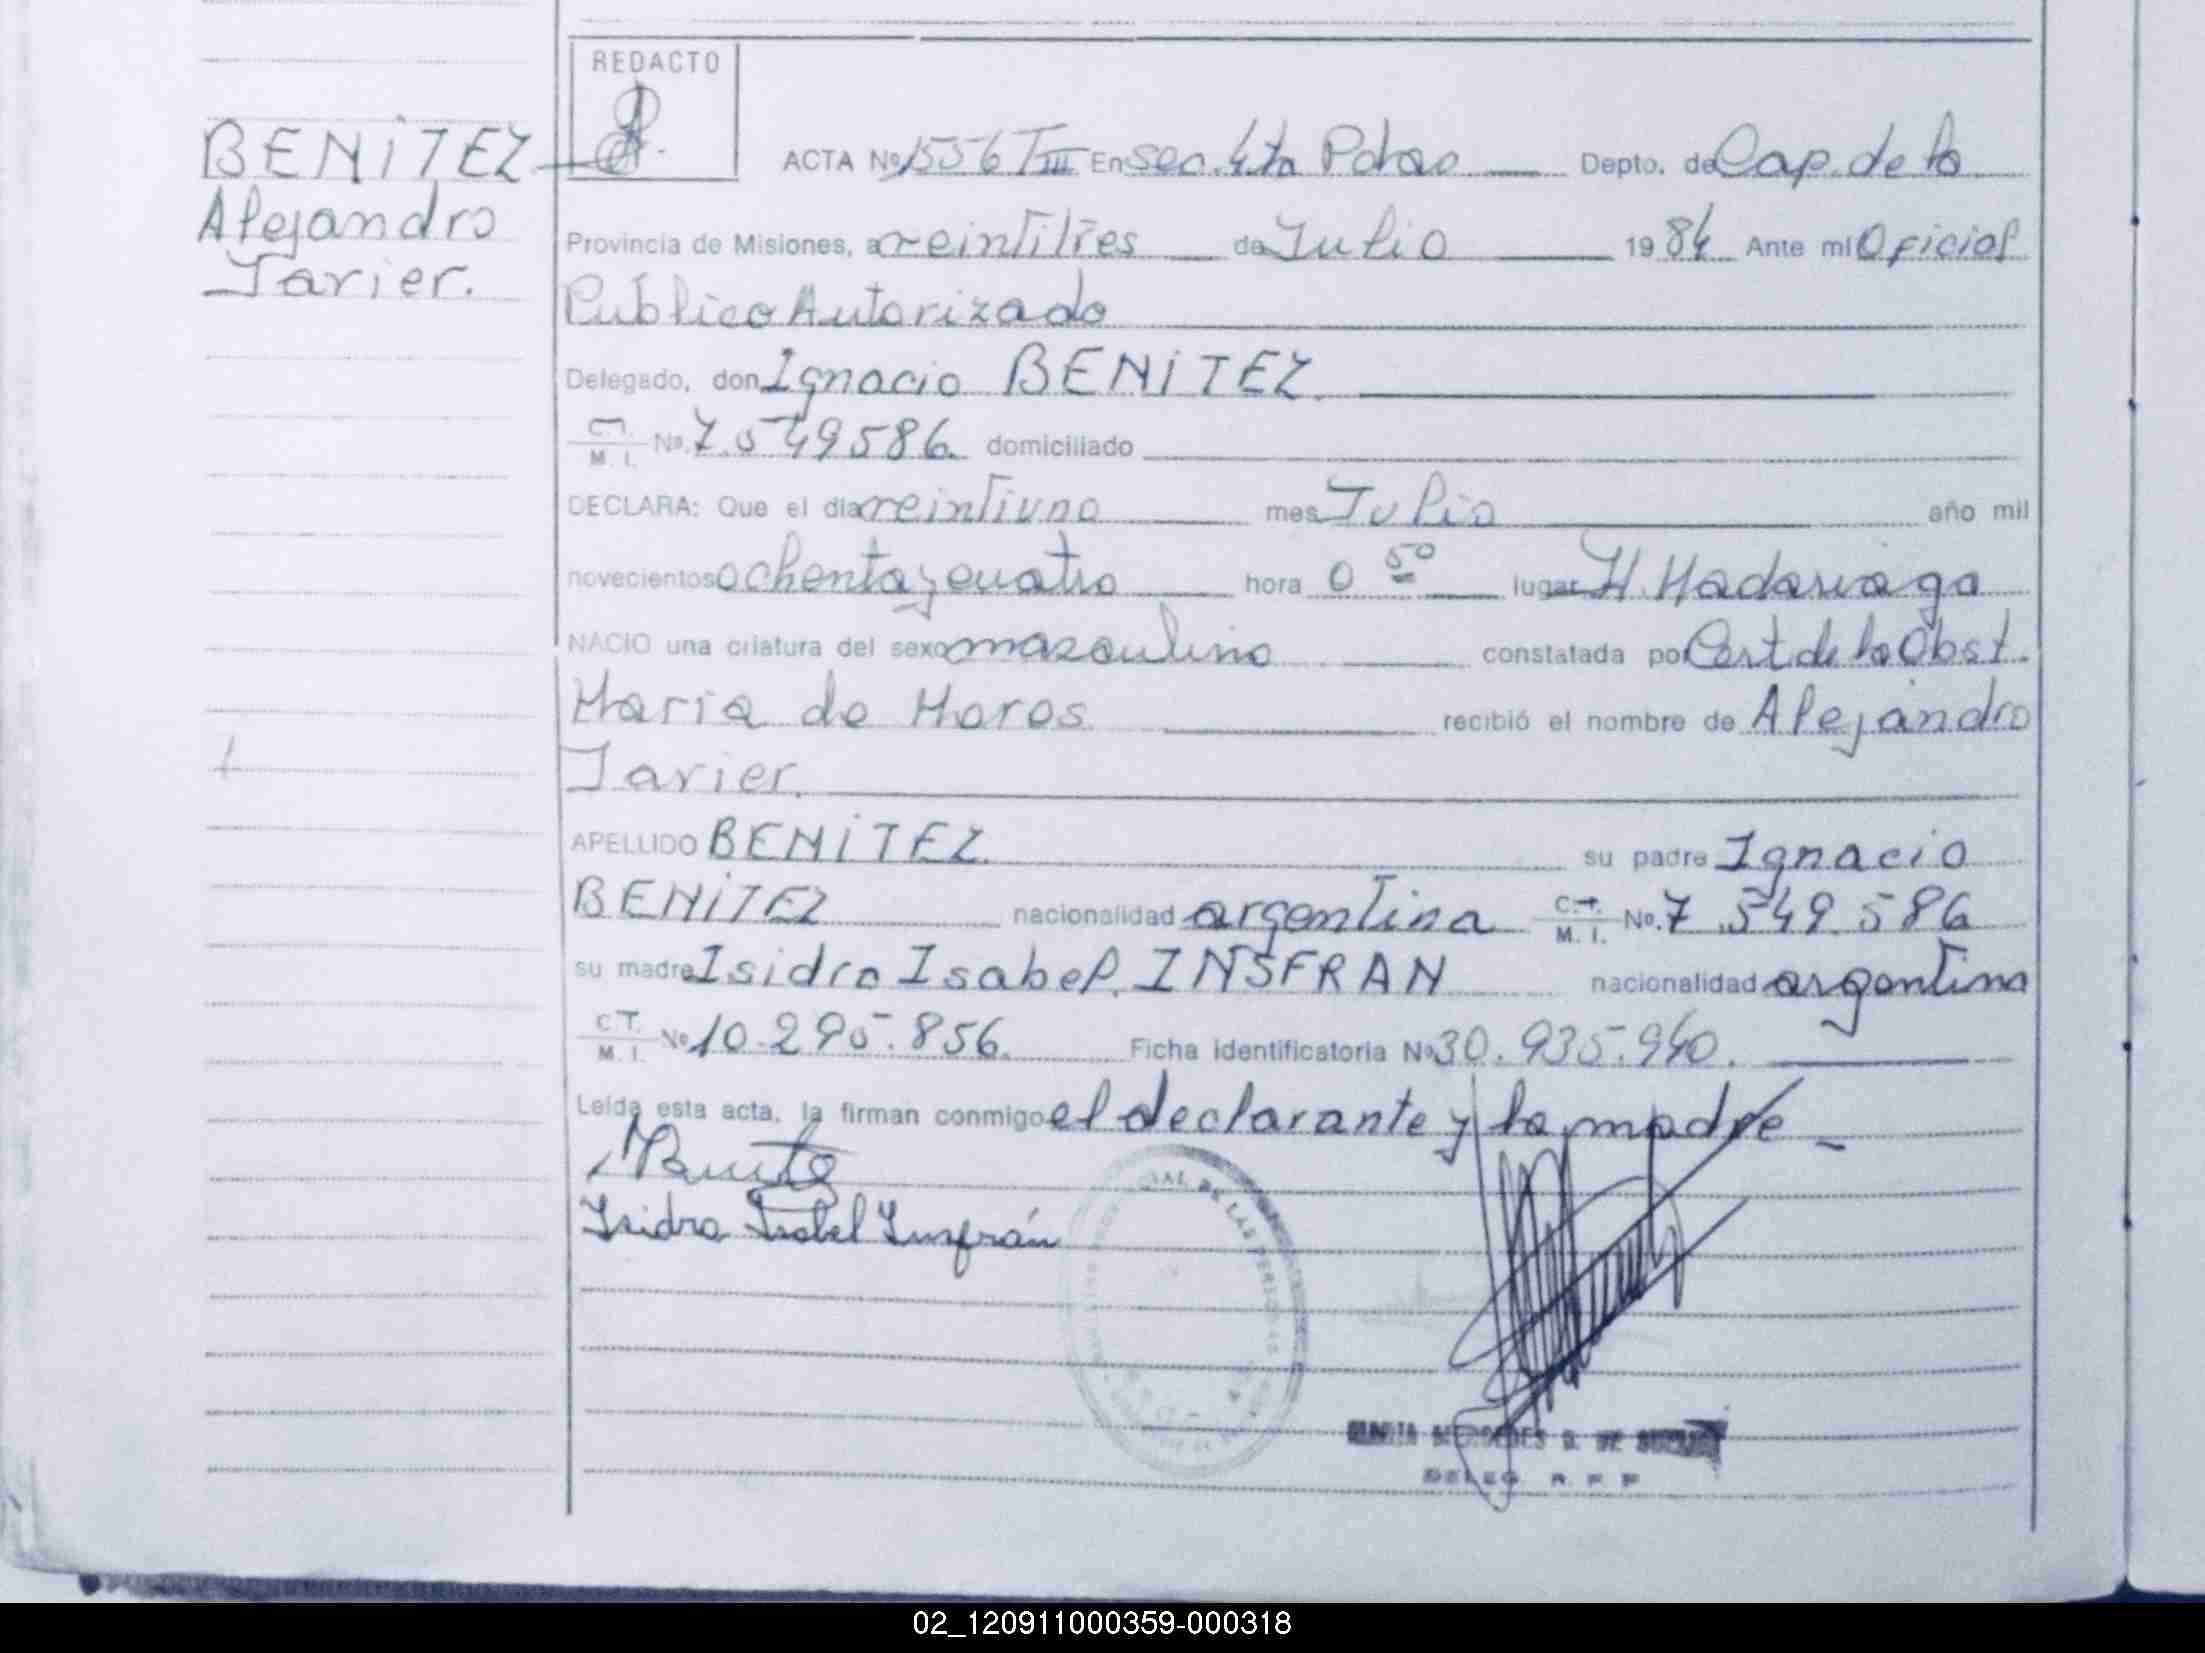 REDACTO
BENITEZ
Alejandro
Javier.
ACTA Nº 1556 T III En Sec. 4ta Pdas Depto. de Cap. de la
Provincia de Misiones, a veintitres de Julio 1984 Ante mi Oficial
Publico Autorizado
Delegado, don Ignacio BENITEZ.
C.I. M. I. Nº 7.549586. domiciliado
DECLARA: Que el dia veintiuno mes Julio año mil
novecientos ochenta y cuatro hora 0 50 lugar H. Madariaga
NACIO una criatura del sexo masculino constatada por Cert de la Obst.
Maria de Moros recibió el nombre de Alejandro
Javier.
APELLIDO BENITEZ. su padre Ignacio
BENITEZ nacionalidad argentina C.I. M. I. Nº. 7.549.586
su madre Isidra Isabel INSFRAN nacionalidad argentina
C.I. M. I. Nº 10.295.856. Ficha identificatoria Nº 30.935.940.
Leída esta acta, la firman conmigo el declarante y la madre
Isidra Isabel Insfrán
DE LAS PERSONAS
MERCEDES G. DE
DELEG R. P. P
02_120911000359-000318